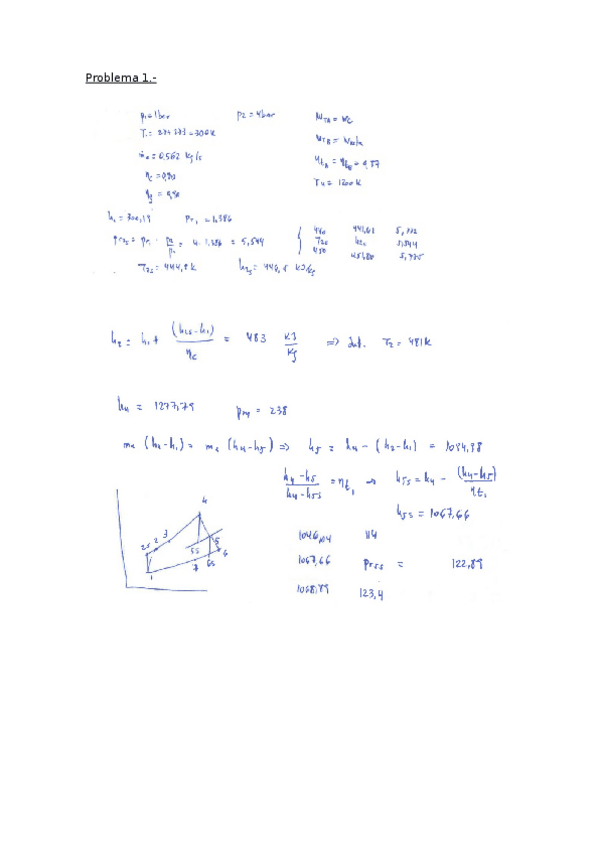 Problema 1.-
p₁=1bar p2=4bar ẆTA = Ẇc
T₁= 27+273=300K
ṁa=0,562 kg/s
ηc=0,83
Tu= 1200K
h₁= 300,19 pr₁ = 1,386
pr2s = pr₁ · p2/p₁ = 4 · 1,386 = 5,544
440 441,61 5,332
T2s h2s 5,544
450 451,80 5,775
T2s= 444,8K h2s= 446,5 kJ/kg
h2= h₁ + (h2s-h₁)/ηc = 483 kJ/kg ⇒ T2= 481K
h4 = 1277,79 pr4 = 238
ma (h2-h₁)= ma (h4-h5) ⇒ h5 = h4 - (h2-h₁) = 1094,98
(h4-h5)/(h4-h5s) = ηt₁ → h5s=h4 - (h4-h5)/ηt₁
h5s = 1067,66
4
2s 2 3
5s 5
7 6s 6
1
1046,04 114
1067,66 pr5s = 122,89
1068,89 123,4